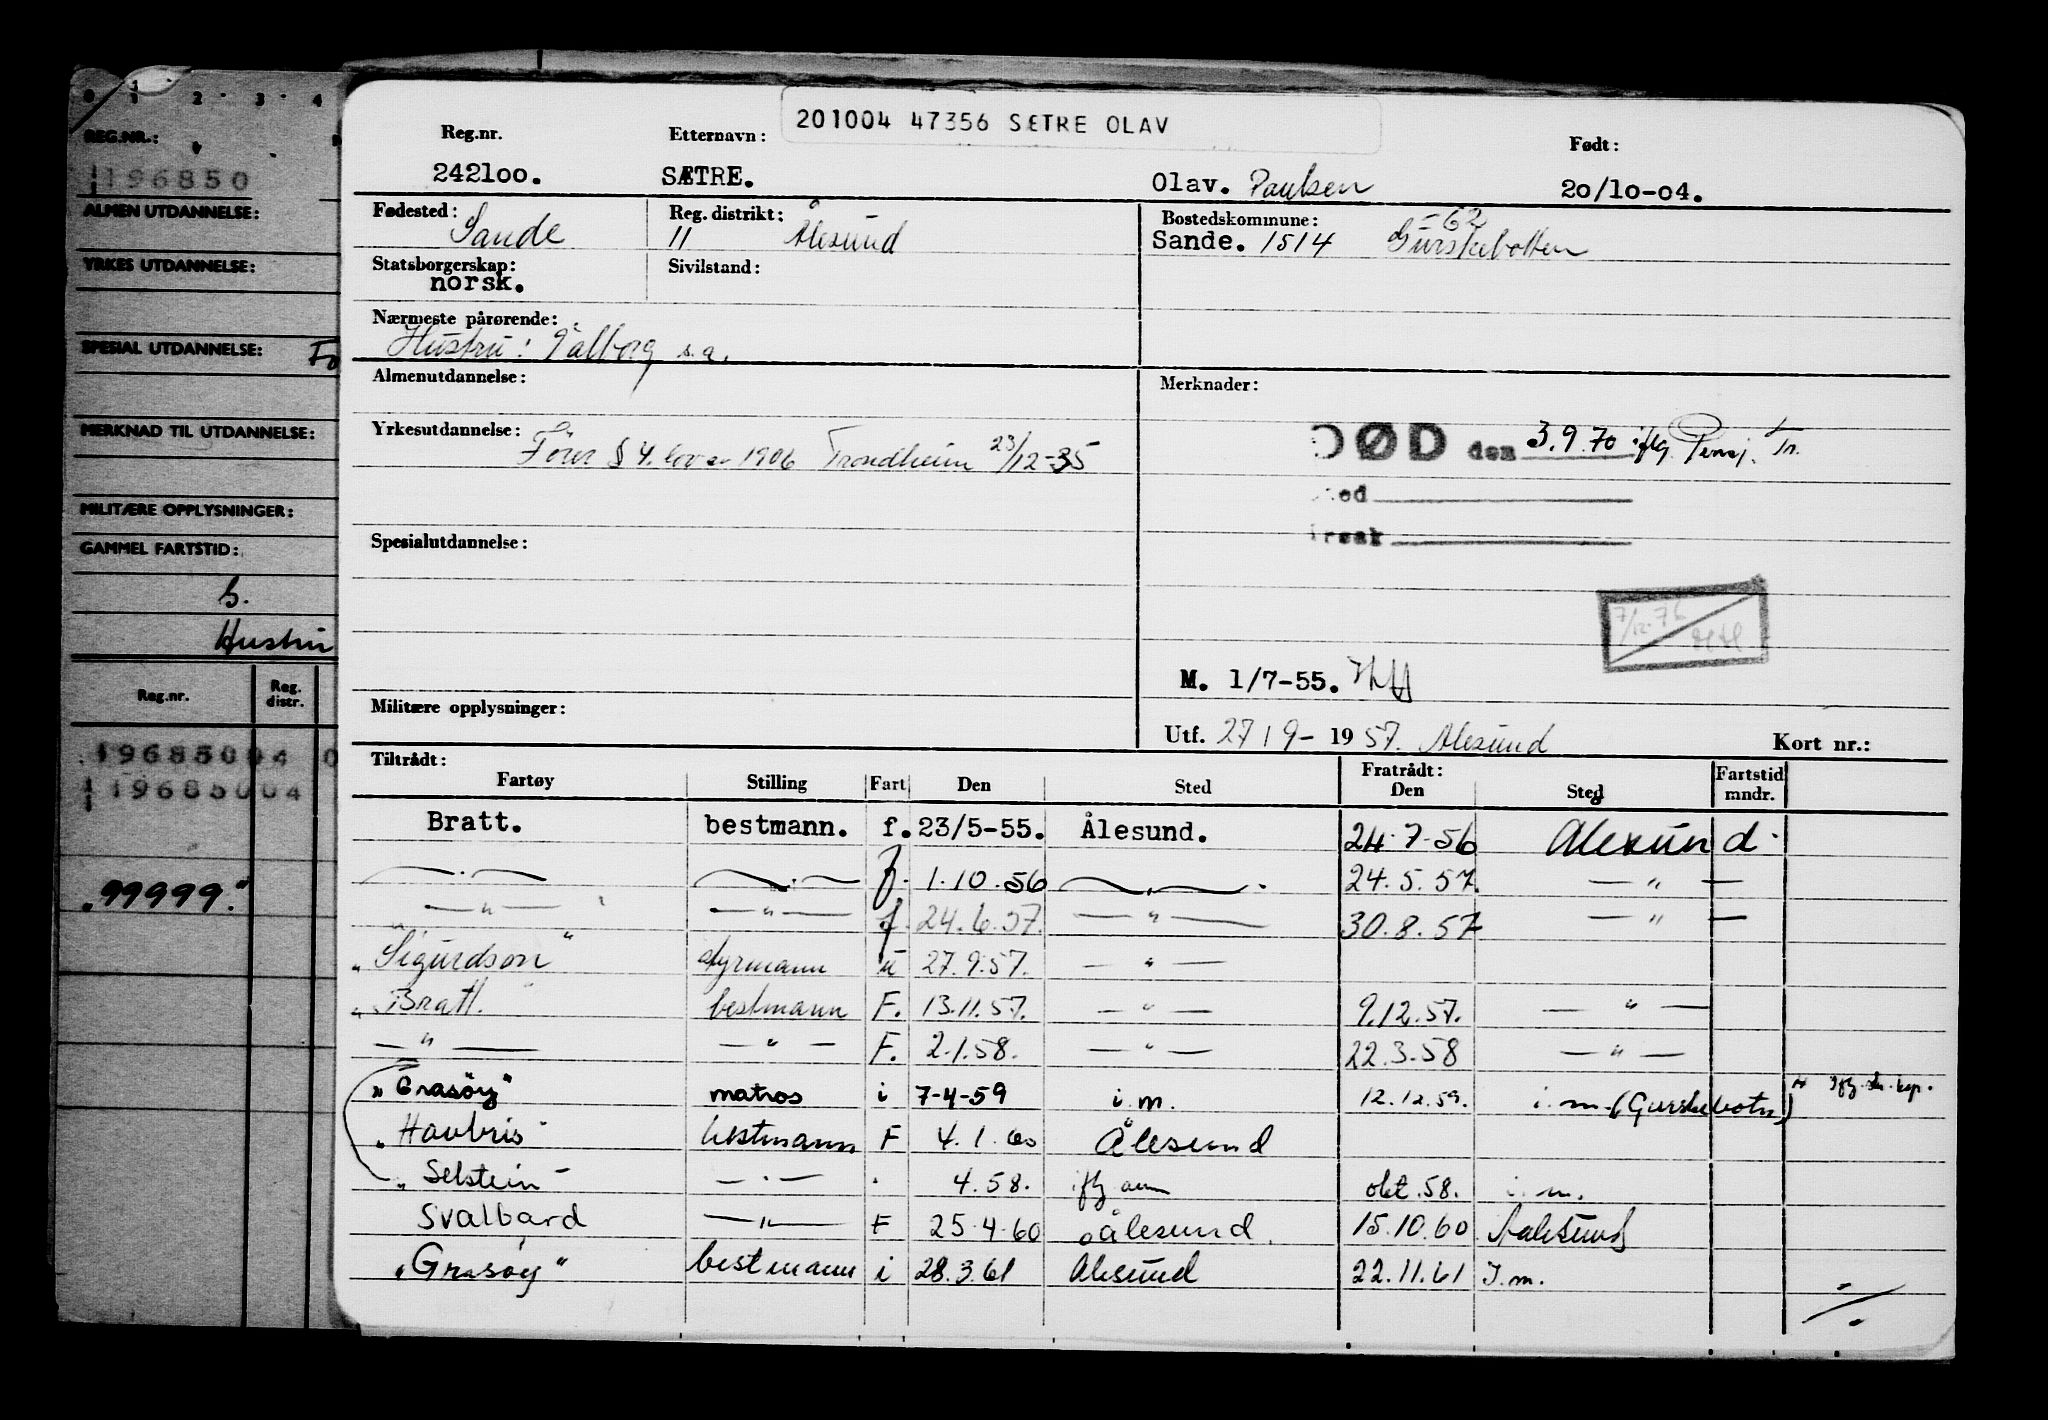 0 1 2 3 4
REG.NR.:
196850
ALMEN UTDANNELSE:
YRKES UTDANNELSE:
SPESIAL UTDANNELSE: Fø
MERKNAD TIL UTDANNELSE:
MILITÆRE OPPLYSNINGER:
GAMMEL FARTSTID:
S.
Hustru
Reg.nr. Reg. distr.
19685004 0
19685004
"99999."
201004 47356 SÆTRE OLAV
Reg.nr. Etternavn: Født:
242100. SÆTRE. Olav. Paulsen 20/10-04.
Fødested: Sande Reg. distrikt: 11 Ålesund Bostedskommune: -62
Sande. 1514 Gurskebotten
Statsborgerskap: norsk. Sivilstand:
Nærmeste pårørende:
Hustru: Valborg s.a.
Almenutdannelse: Merknader:
Yrkesutdannelse: Fører § 4. lov av 1906 Trondheim 23/12-35
DØD den 3.9.70 iflg. Pensj. Tr.
Sted
Årsak
Spesialutdannelse:
7/12.76
M. 1/7-55.
Militære opplysninger:
Utf. 27/9- 1957. Ålesund Kort nr.:
Tiltrådt: Fratrådt: Fartstid
Fartøy Stilling Fart Den Sted Den Sted mndr.
Bratt. bestmann. f. 23/5-55. Ålesund. 24.7-56 Ålesund.
—.— —.— f. 1.10.56 —"— 24.5.57. —"—
—"— —"— f. 24.6.57. —"— 30.8.57 —"—
"Sigurdson" styrmann u 27.9.57. —"—
"Bratt." bestmann F. 13.11.57. —"— 9.12.57. —"—
—"— —"— F. 2.1.58. —"— 22.3.58 —"—
"Grasøy" matros i 7-4-59 i.m. 12.12.59. i.m. (Gurskebotn)
"Havbris" bestmann F 4.1.60 Ålesund
"Selstein" —.— . 4.58. iflg am okt.58. i.m.
Svalbard —"— F 25.4.60 Ålesund. 15.10.60 Aalesund
"Grasøy" bestmann i 28.3.61 Ålesund 22.11.61 I.m.